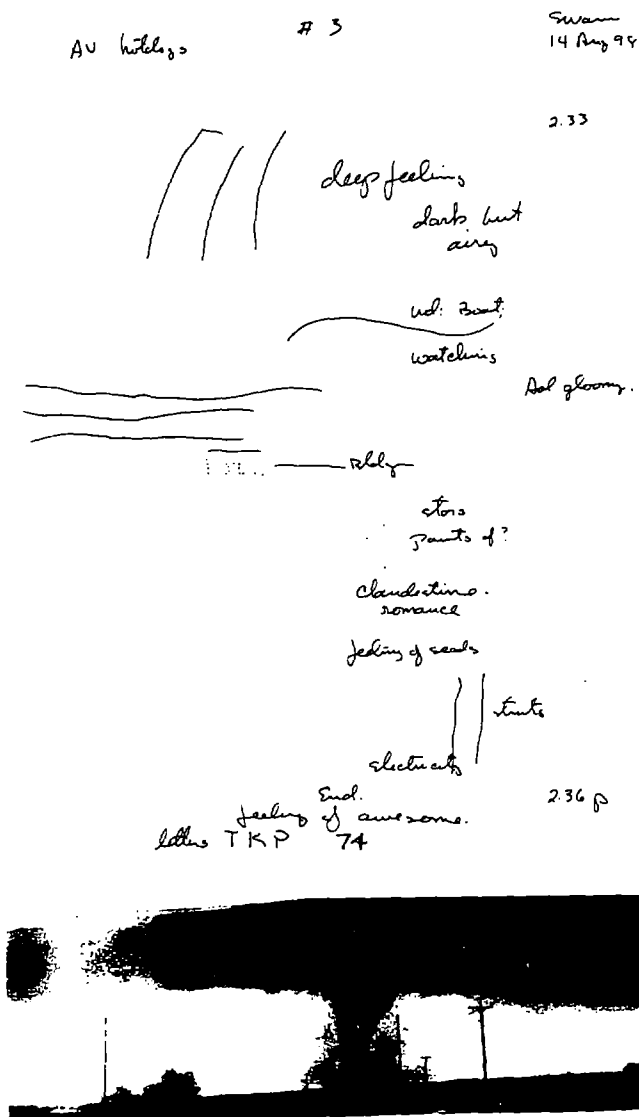 # 3
AV hotdogs
Swann
14 Aug 98
2.33
deep feeling
dark but
airy
Boat;
watching
Aol gloomy.
Bldg
stars
Paints of?
Clandestine.
romance
feeling of seeds
struts
electricity
End.
2.36 p
feeling of awesome.
letters TKP 74